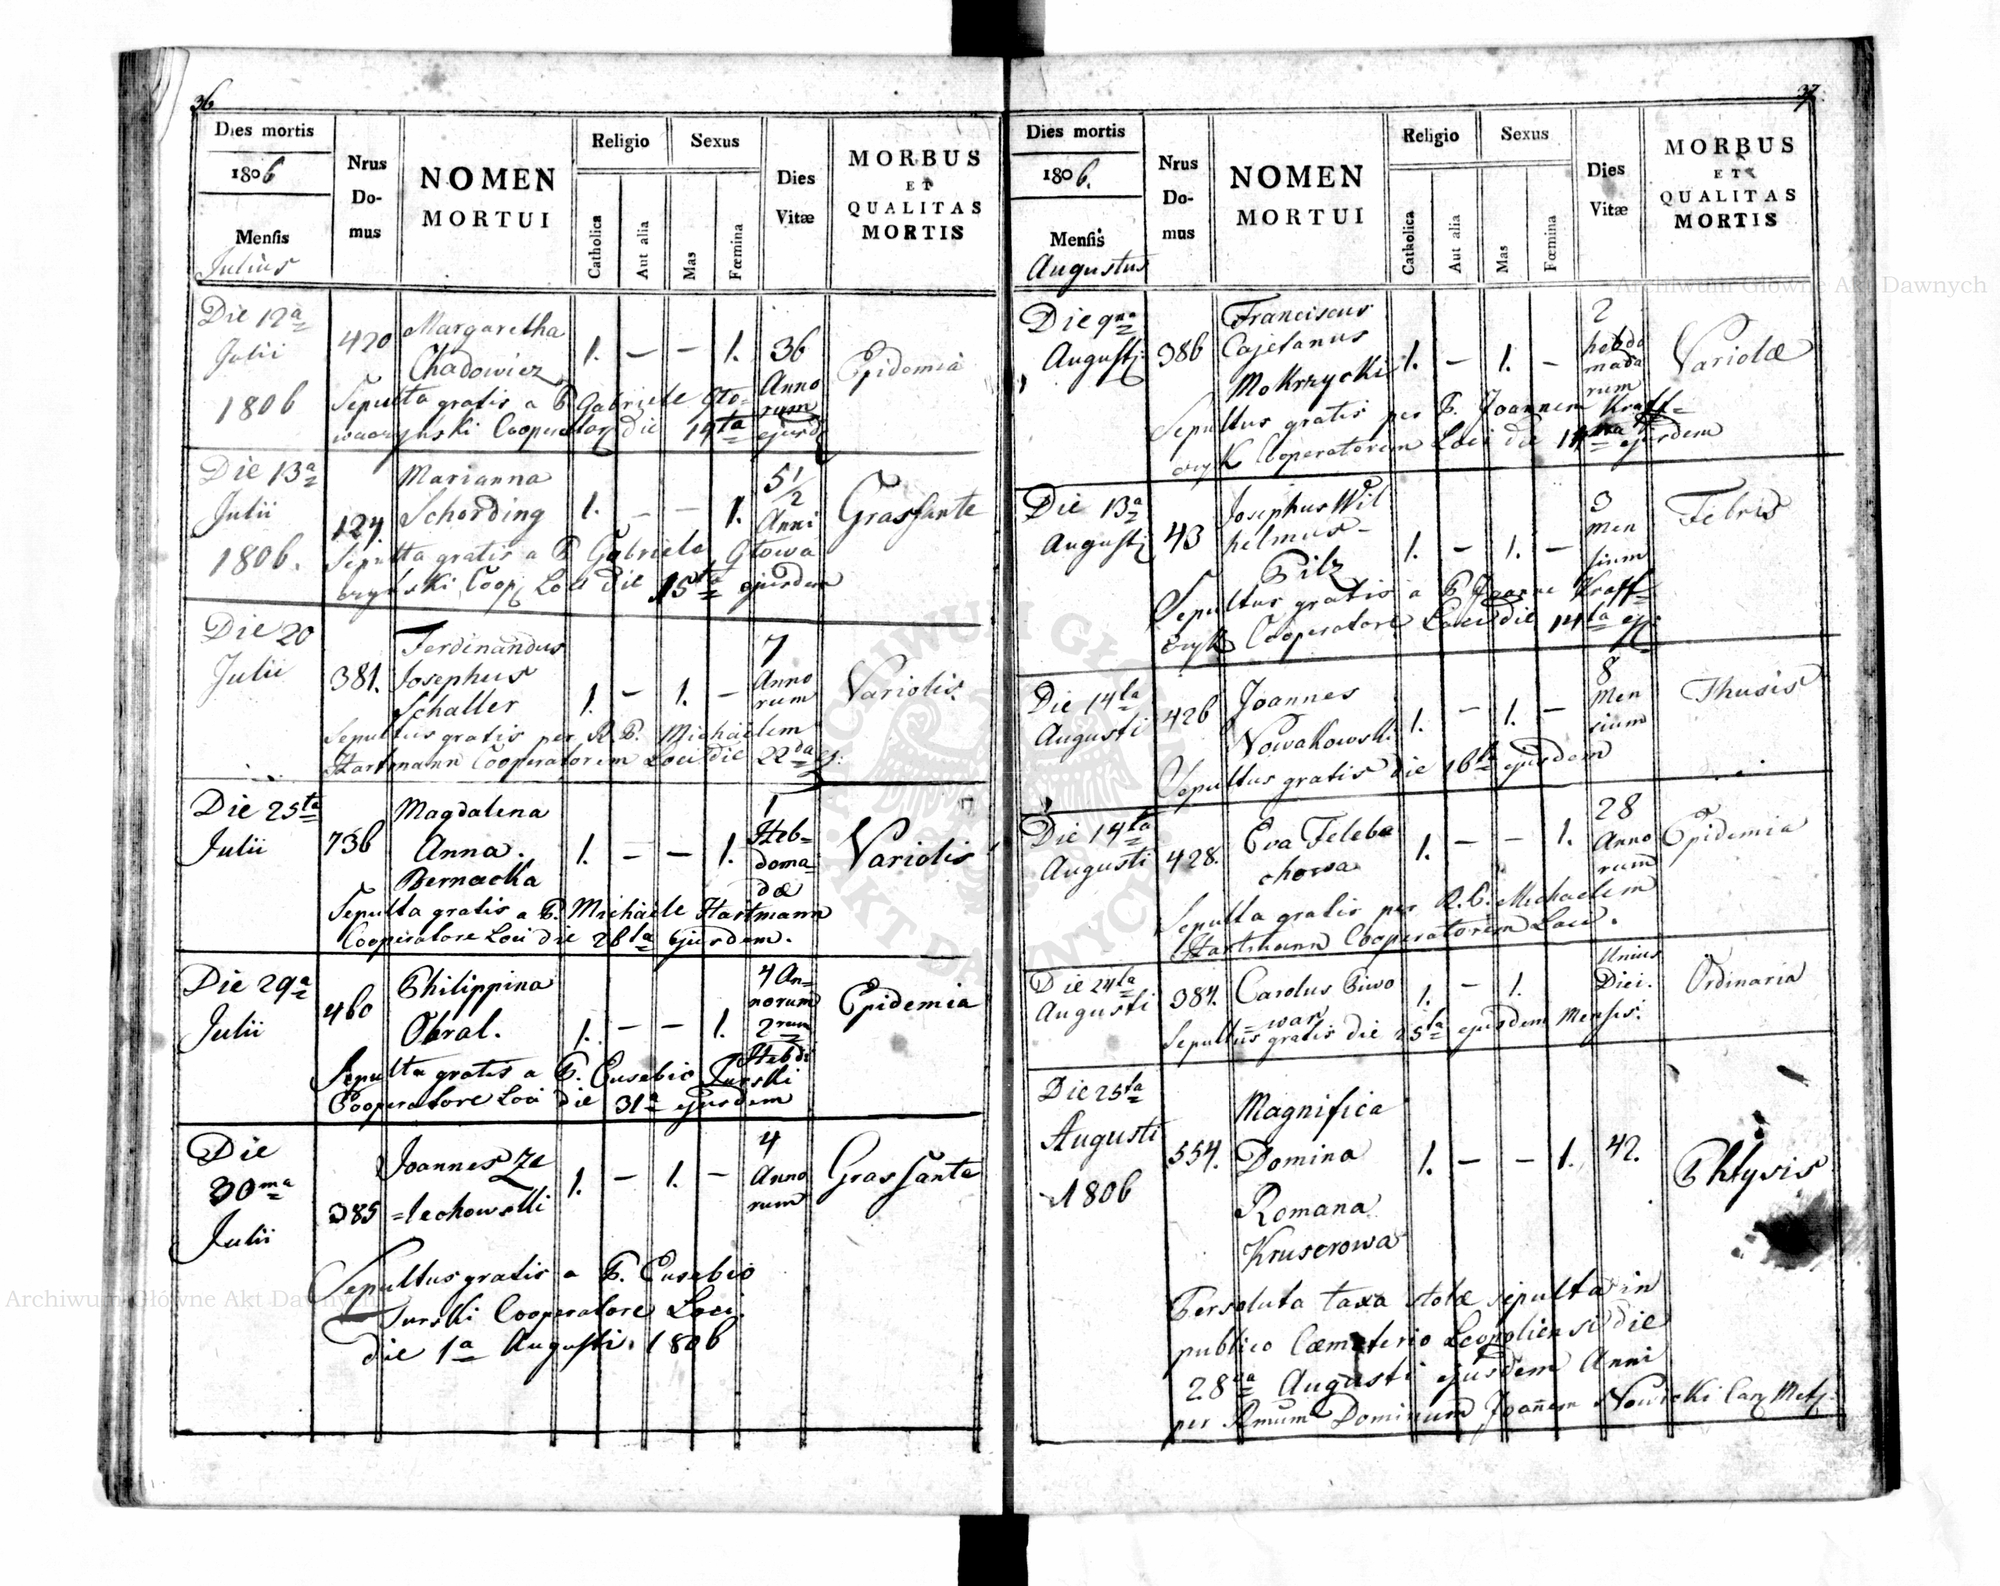 36
Dies mortis
1806
Mensis
Julius
Nrus Do-mus
NOMEN
MORTUI
Religio
Catholica
Aut alia
Sexus
Mas
Fœmina
Dies
Vitæ
MORBUS
ET
QUALITAS
MORTIS
Die 12a
Julii
1806
420
Margaretha
Chadowicz
1. — — 1.
36
Anno
rum
Epidemia
Sepulta gratis a P. Gabriele Gło-
Cooperator die 14ta ejusd
Die 13a
Julii
1806.
124.
Marianna
Schording
1. — — 1.
5 1/2
Anni
Grassante
Sepulta gratis a P. Gabriele Głowa
Coop. Loci die 15ta ejusdem
Die 20
Julii
381.
Ferdinandus
Josephus
Schaller
1. — 1. —
7
Anno
rum
Variolis.
Sepultus gratis per R. P. Michaelem
Hartmann Cooperatorem Loci die 22da ej:
Die 25ta
Julii
736
Magdalena
Anna.
Bernacka
1. — — 1.
1
Heb=
doma
dæ
Variolis
Sepulta gratis a P. Michaele Hartmann
Cooperatore Loci die 26ta ejusdem.
Die 29a
Julii
460
Philippina
Obral.
1. — — 1.
4 An=
norum
2rum
Hebd:
Epidemia
Sepulta gratis a P. Eusebio Turski
Cooperatore Loci die 31a ejusdem
Die
30ma
Julii
385
Joannes Ze
=lechowski
1. — 1. —
4
Anno
rum
Grassante
Sepultus gratis a P. Eusebio
Turski Cooperatore Loci
die 1a Augusti. 1806
37.
Dies mortis
1806.
Mensis
Augustus
Nrus
Do-
mus
NOMEN
MORTUI
Religio
Catholica
Aut alia
Sexus
Mas
Fœmina
Dies
Vitæ
MORBUS
ET
QUALITAS
MORTIS
Die 9na
Augusti
386
Franciscus
Cajetanus
Mokrzycki
1. — 1. —
2
hebdo
mada
rum
Variolæ
Sepultus gratis per P. Joannem Kraff=
czyk Cooperatorem Loci die ejusdem
Die 13a
Augusti
43
Josephus Wil
helmus=
Pilz
1. — 1. —
3
Men
sium
Febris
Sepultus gratis a P. Joanne Kraff=
czyk Cooperatore Loci die 14ta ej:
Die 14ta
Augusti
426
Joannes
Nowakowski
1. — 1. —
8
Men
sium
Thusis
Sepultus gratis die 16ta ejusdem
Die 14ta
Augusti
428.
Eva Feleba
chowa
1. — — 1.
28
Anno
rum
Epidemia
Sepulta gratis per R. P. Michaelem
Hartmann Cooperatorem Loci.
Die 24ta
Augusti
384.
Carolus Piwo
=war
1. — 1.
Unius
Diei.
Ordinaria
Sepultus gratis die 25ta ejusdem Mensis.
Die 25ta
Augusti
1806
554.
Magnifica
Domina
Romana
Kruserowa
1. — — 1.
42.
Phtysis
Persoluta taxa stolæ sepulta in
publico Cæmeterio Leopoliensi die
28va Augusti ejusdem Anni
per Rmum Dominum Joañem Nowicki Can. Met.
Archiwum Główne Akt Dawnych
Archiwum Główne Akt Dawnych
ARCHIWUM GŁÓWNE AKT DAWNYCH